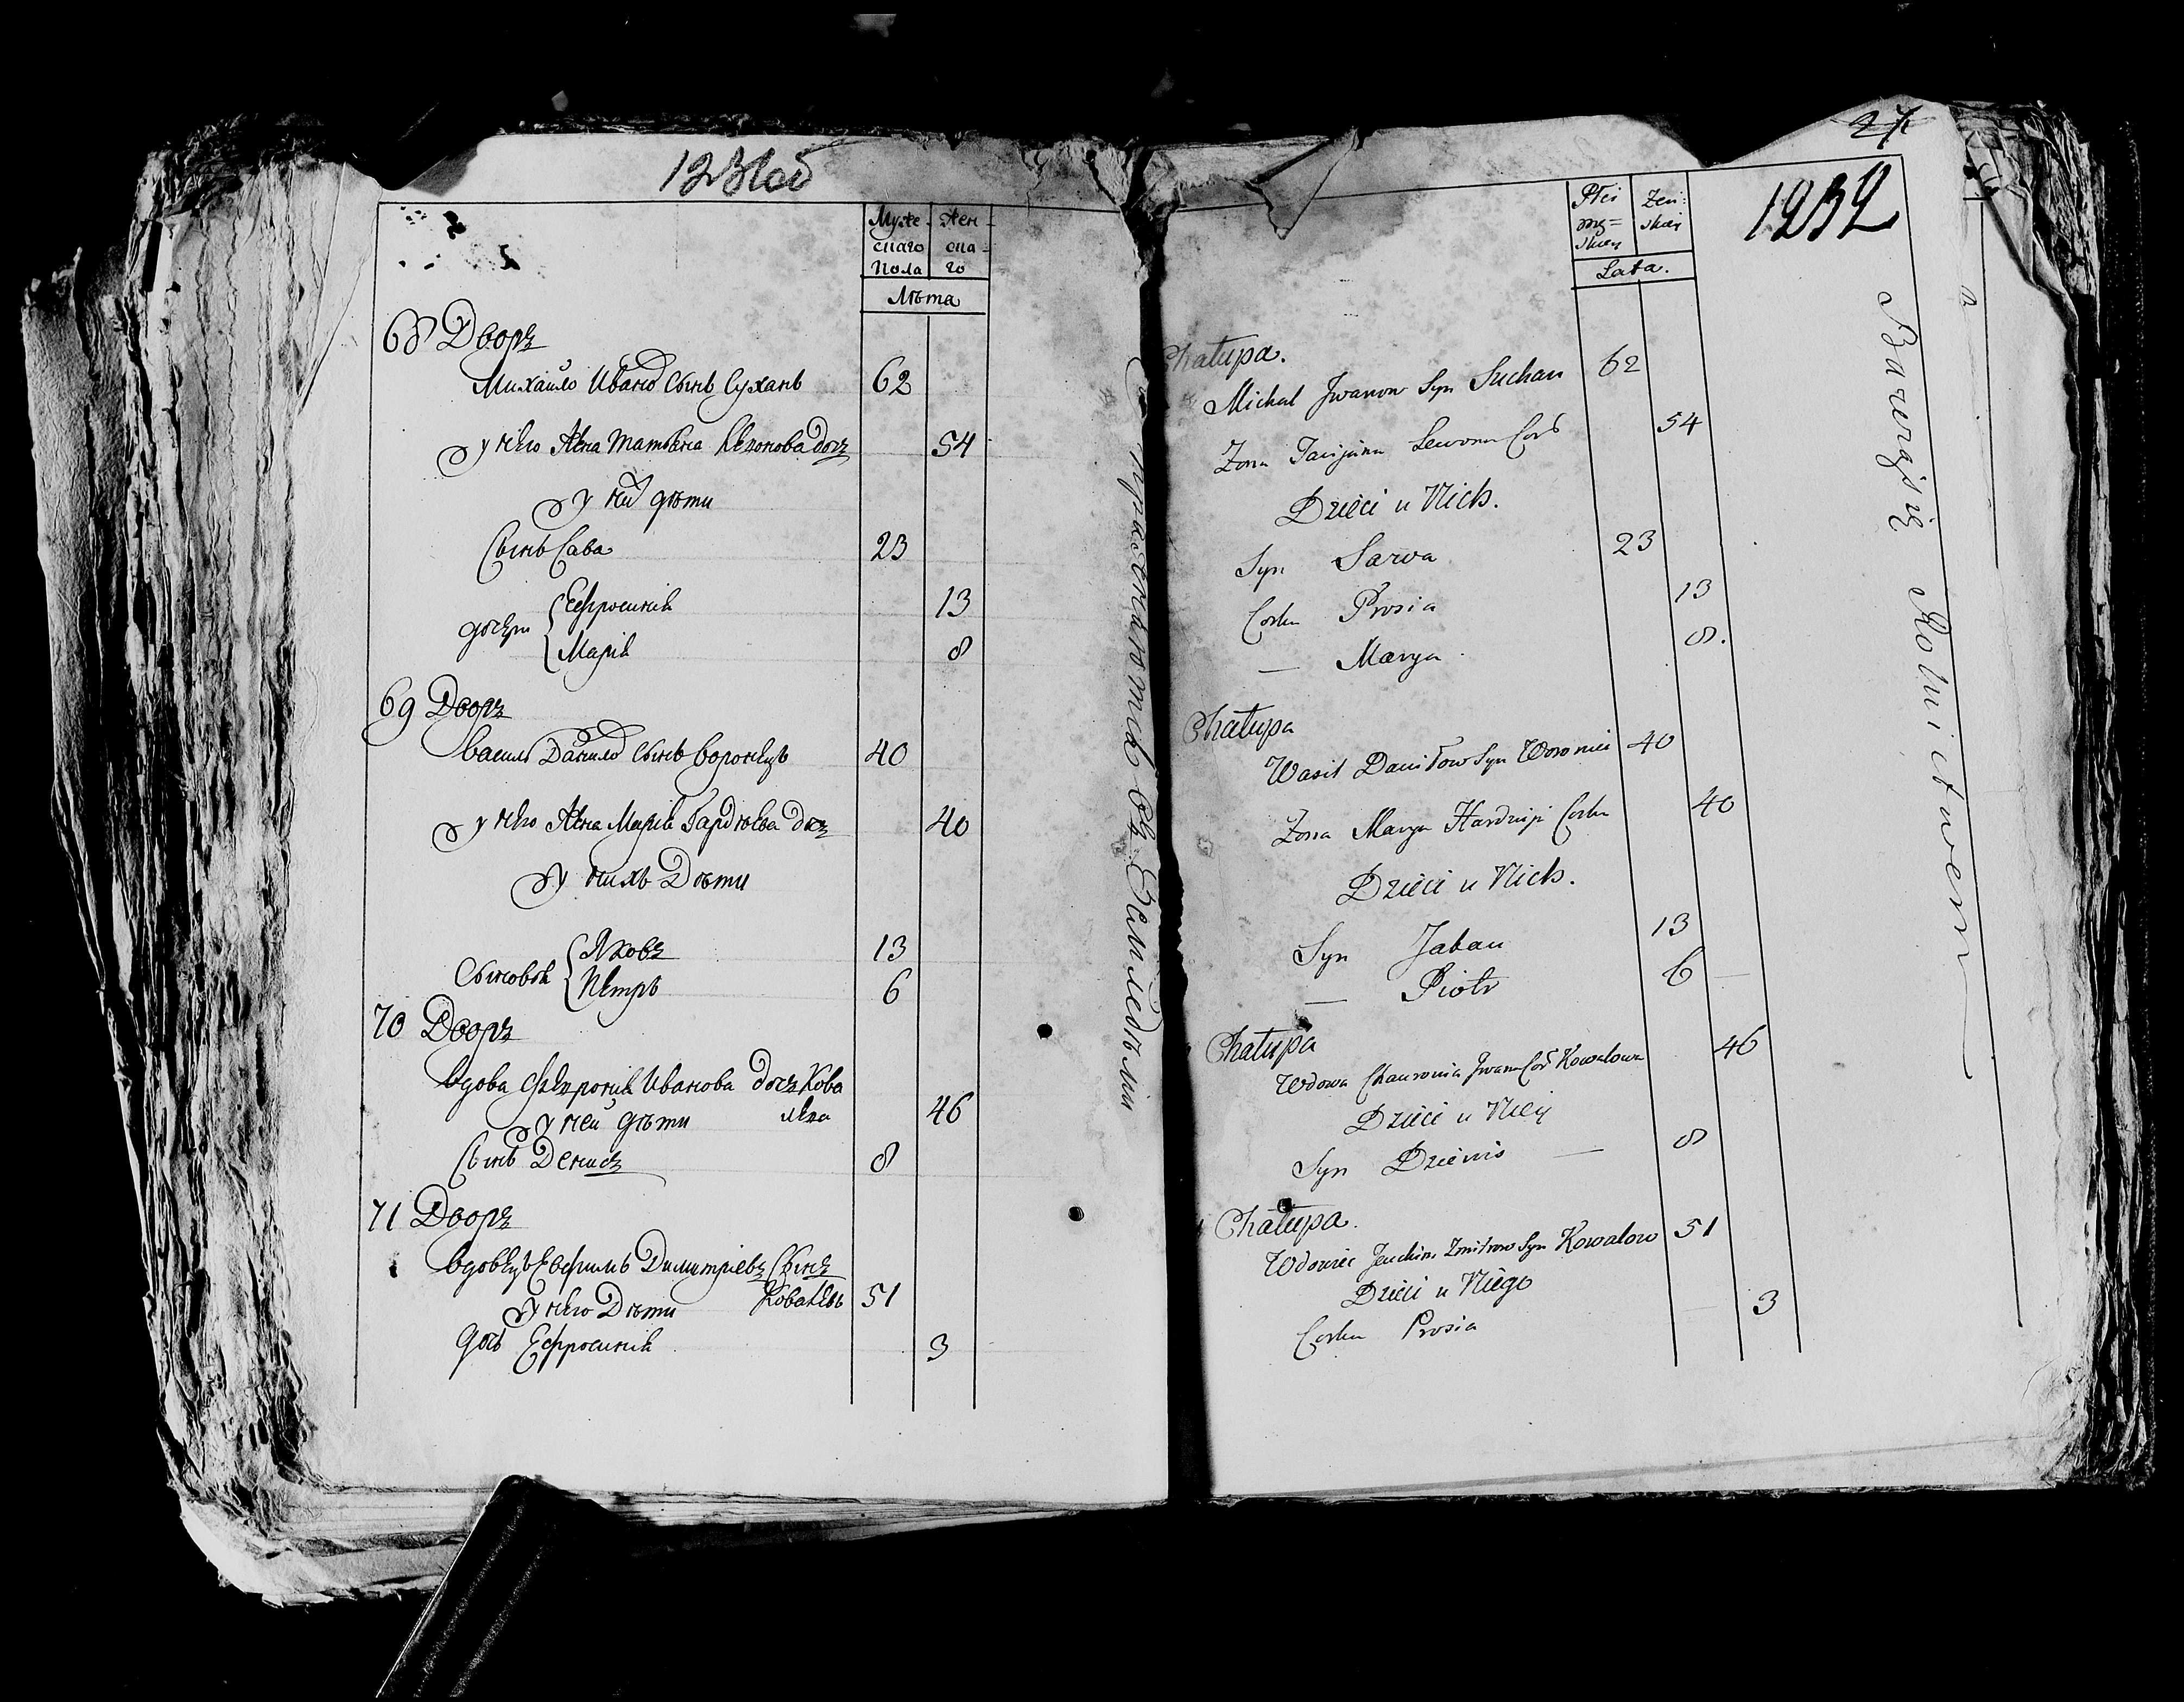 1231об
Муже- Жен-
скаго ска-
Пола го
Лѣта
68 Дворъ
Михайло Иванов Сынъ Суханъ 62
у него Жена Татьяна Левонова дочъ 54
у ней дѣти
Сынъ Сава 23
дочери Ефросинія 13
Марія 8
69 Дворъ
Василь Данилов Сынъ Воронецъ 40
у него Жена Марія Гардѣева дочъ 40
у нихъ Дѣти
Сыновья Яковъ 13
Петръ 6
70 Дворъ
Вдова Февронія Иванова дочъ Кова
лева 46
у ней дѣти
Сынъ Денисъ 8
71 Дворъ
Вдовецъ Евфимъ Димитріевъ Сынъ
Ковалевъ 51
у него Дѣти
дочь Ефросинія 3
Землѣдѣлія
1232
Płci Żeń:
mę= skiey
skiey
Lata.
Chałupa.
Michał Jwanow Syn Suchan 62
Żona Tacijana Lewona Cor 54
Dzieci u Nich.
Syn Sawa 23
Corka Prosia 13
— Marya 8.
Chałupa
Wasil Daniłow Syn Woroniec 40
Żona Marya Hardziej Corka 40
Dzieci u Nich.
Syn Jakau 13
— Piotr 6
Chałupa
Wdowa Chauronia Jwana Cor Kowalowa 46
Dzieci u Niey
Syn Dzienis — 8
Chałupa.
Wdowiec Jeuchim Zmitrow Syn Kowalow 51
Dzieci u Niego
Corka Prosia 3
Bawiąsię Rolnictwem